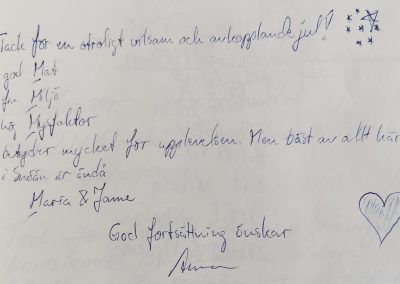 Tack för en otroligt vilsam och avkopplande jul!
god Mat
fin Miljö
hög Mysfaktor
betyder mycket for upplevelsen. Men bäst av allt här
i Sndån är ändå
Maria & Janne
God fortsättning önskar